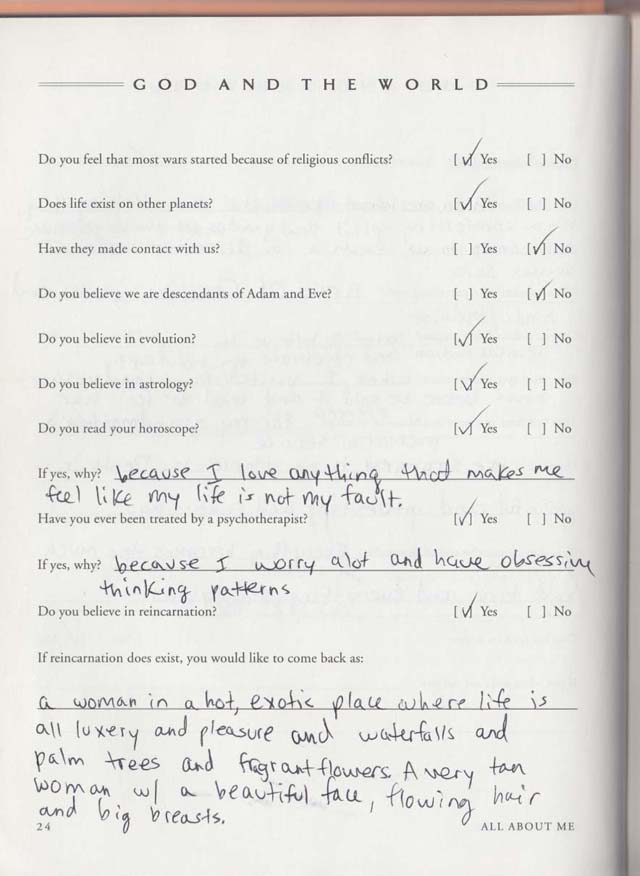 GOD AND THE WORLD
Do you feel that most wars started because of religious conflicts? [✓] Yes [ ] No
Does life exist on other planets? [✓] Yes [ ] No
Have they made contact with us? [ ] Yes [✓] No
Do you believe we are descendants of Adam and Eve? [ ] Yes [✓] No
Do you believe in evolution? [✓] Yes [ ] No
Do you believe in astrology? [✓] Yes [ ] No
Do you read your horoscope? [✓] Yes [ ] No
If yes, why? because I love anything that makes me
feel like my life is not my fault.
Have you ever been treated by a psychotherapist? [✓] Yes [ ] No
If yes, why? because I worry alot and have obsessive
thinking patterns
Do you believe in reincarnation? [✓] Yes [ ] No
If reincarnation does exist, you would like to come back as:
a woman in a hot, exotic place where life is
all luxery and pleasure and waterfalls and
palm trees and fragrant flowers. A very tan
woman w/ a beautiful face, flowing hair
and big breasts.
24 ALL ABOUT ME